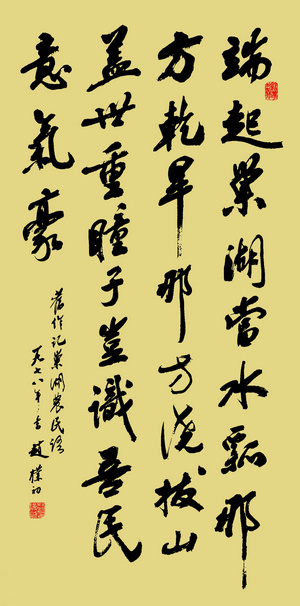 端起巢湖當水瓢那
方乾旱那方澆拔山
蓋世重瞳子豈識吾民
意氣豪
舊作記巢湖農民語
一九七八年
趙樸初